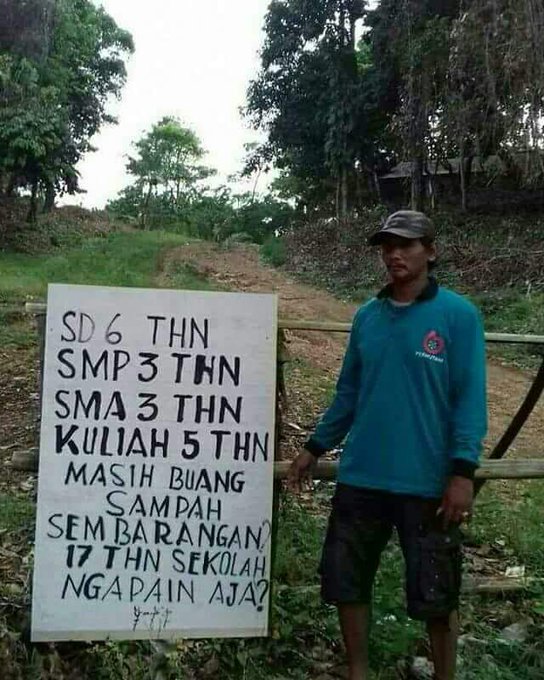 SD 6 THN
SMP 3 THN
SMA 3 THN
KULIAH 5 THN
MASIH BUANG
SAMPAH
SEMBARANGAN?
17 THN SEKOLAH
NGAPAIN AJA?